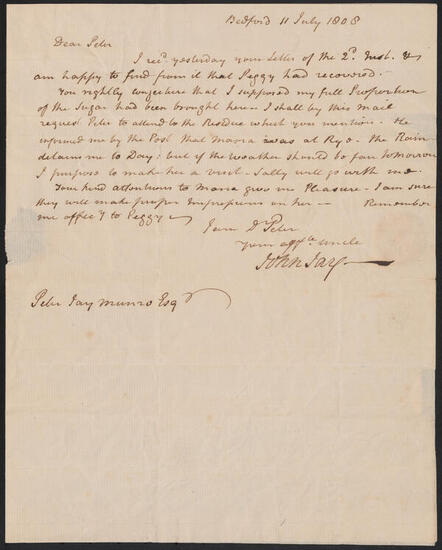 Bedford 11 July 1808
Dear Peter
I recd. yesterday your Letter of the 2d. Inst. &
am happy to find from it that Peggy had recovered.
You rightly conjecture that I supposed my full Proportion
of the Sugar had been brought here — I shall by this mail
request Peter to attend to the Residue which you mention. He
informed me by the Post that Maria was at Rye. The Rain
detains me to Day; but if the weather should be fair tomorrow
I purpose to make her a visit — Sally will go with me.
Your kind attentions to Maria give me Pleasure. I am sure
they will make proper Impressions on her — Remember
me affecy. to Peggy
I am Dr. Peter
your affte. uncle
John Jay
Peter Jay Munro Esqr